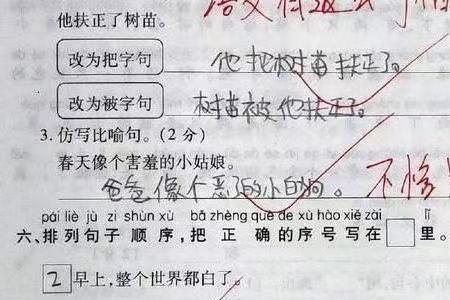 他扶正了树苗。
改为把字句 他把树苗扶正了。
改为被字句 树苗被他扶正了。
3. 仿写比喻句。(2分)
春天像个害羞的小姑娘。
爸爸像个恶了的小白狗。
pái liè jù zi shùn xù bǎ zhèng què de xù hào xiě zài lǐ
六、排列句子顺序,把正确的序号写在 里。
2 早上,整个世界都白了。